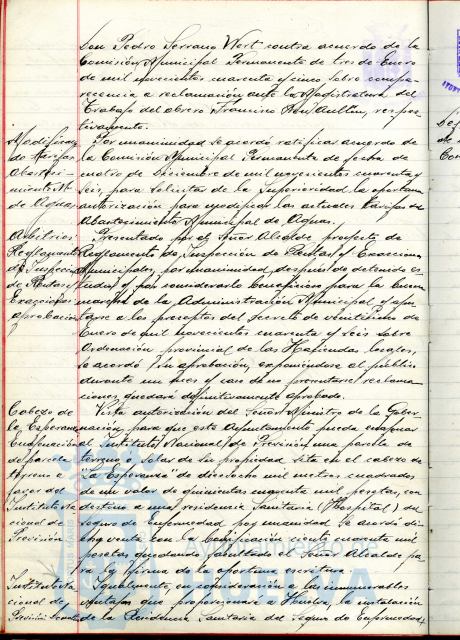 Don Pedro Serrano Wert contra acuerdo de la
Comisión Municipal Permanente de tres de Enero
de mil novecientos cuarenta y cinco sobre compa-
recencia a reclamación ante la Magistratura del
Trabajo del obrero Francisco Aullón, respec-
tivamente.
Modificación
de tarifas
Abasteci-
miento M.
de Aguas
Por unanimidad se acordó ratificar acuerdo de
la Comisión Municipal Permanente de fecha de
cuatro de Diciembre de mil novecientos cuarenta y
seis, para solicitar de la Superioridad la oportuna
autorización para modificar las actuales Tarifas del
Abastecimiento Municipal de Aguas.
Arbitrios
Reglamento
de Inspección
de Rentas y
Exacciones
aprobación
Presentado por el Señor Alcalde proyecto de
Reglamento de Inspección de Rentas y Exacciones
Municipales, por unanimidad, después de detenido es-
tudio y por considerarlo beneficioso para la buena
marcha de la Administración Municipal y ajus-
tarse a los preceptos del Decreto de veinticinco de
Enero de mil novecientos cuarenta y seis sobre
Ordenación provincial de las Haciendas locales,
se acordó su aprobación, exponiéndose al público
durante un mes y caso de no presentarse reclama-
ciones quedará definitivamente aprobado.
Cabezo de
la Esperanza
Enajenación
de parcela
terreno a
favor del
Instituto Na-
cional de
Previsión
Vista autorización del Señor Ministro de la Gober-
nación, para que este Ayuntamiento pueda enajenar
al Instituto Nacional de Previsión una parcela de
terreno o solar de su propiedad sita en el cabezo de
"La Esperanza" de dieciocho mil metros cuadrados
de un valor de quinientas cuarenta mil pesetas, con
destino a una residencia Sanitaria (Hospital) del
seguro de enfermedad por unanimidad se acordó di-
cha venta con la bonificación ciento cuarenta mil
pesetas quedando facultado el Señor Alcalde pa-
ra la firma de la oportuna escritura.
Instituto Na-
cional de
Previsión
Igualmente, en consideración a las innumerables
ventajas que proporcionará a Huelva, la instalación
de la Residencia Sanitaria del Seguro de Enfermedad,
Ayuntamiento de
HUELVA